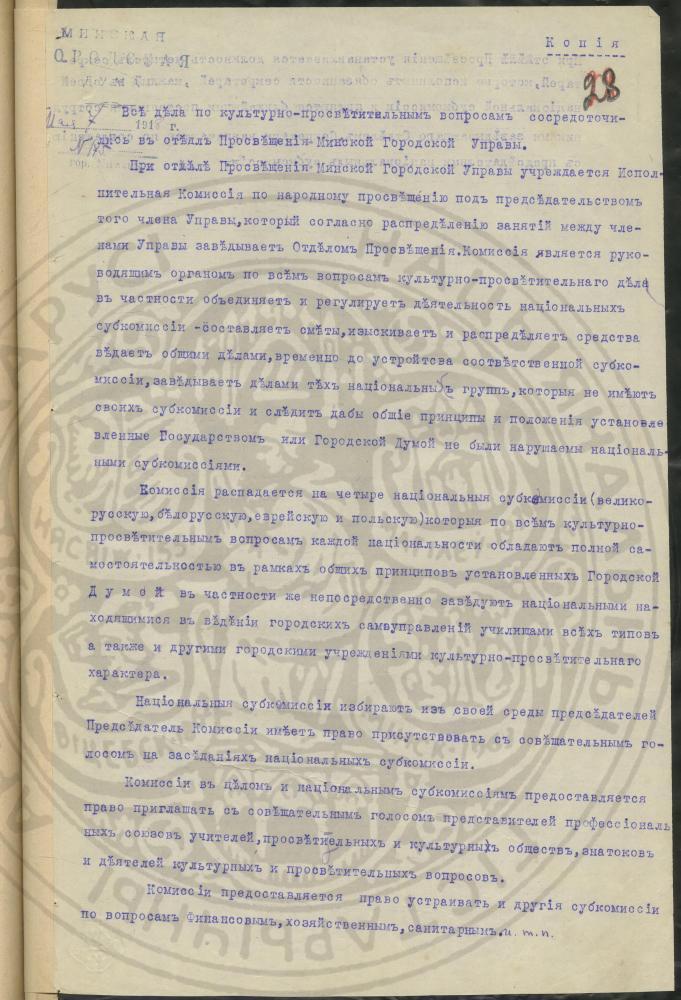 МИНСКАЯ
ГОРОДСКАЯ
Копія
28
Мая 7 1918 г.
№
гор. Минск
Всѣ дѣла по культурно-просвѣтительнымъ вопросамъ сосредоточи-
лись въ отдѣлъ Просвѣщенія Минской Городской Управы.
При отдѣлѣ Просвѣщенія Минской Городской Управы учреждается Испол-
нительная Комиссія по народному просвѣщенію подъ предсѣдательствомъ
того члена Управы,который согласно распредѣленію занятій между чле-
нами Управы завѣдываетъ Отдѣломъ Просвѣщенія.Комиссія является руко-
водящимъ органомъ по всѣмъ вопросамъ культурно-просвѣтительнаго дѣла
въ частности объединяетъ и регулируетъ дѣятельность національныхъ
субкомиссіи -составляетъ смѣты,изыскиваетъ и распредѣляетъ средства
вѣдаетъ общими дѣлами,временно до устройтсва соотвѣтственной субко-
миссіи,завѣдываетъ дѣлами тѣхъ національныхъ группъ,которыя не имѣютъ
своихъ субкомиссіи и слѣдитъ дабы общіе принципы и положенія установле
вленные Государствомъ или Городской Думой не были нарушаемы національ-
ными субкомиссіями.
Комиссія распадается на четыре національныя субкомиссіи(велико-
русскую,бѣлорусскую,еврейскую и польскую)которыя по всѣмъ культурно-
просвѣтительнымъ вопросамъ каждой національности обладаютъ полной са-
мостоятельностью въ рамкахъ общихъ принциповъ установленныхъ Городской
Думой въ частности же непосредственно завѣдуютъ національными на-
ходящимися въ вѣдѣніи городскихъ самвуправленій училищами всѣхъ типовъ
а также и другими городскими учрежденіями культурно-просвѣтительнаго
характера.
Національныя субкомиссіи избираютъ изъ своей среды предсѣдателей
Предсѣдатель Комиссіи имѣетъ право присутствовать съ совѣщательнымъ го-
лосомъ на засѣданіяхъ національныхъ субкомиссіи.
Комиссіи въ цѣломъ и національнымъ субкомиссіямъ предоставляется
право приглашать съ совѣщательнымъ голосомъ представителей профессіональ
ныхъ союзовъ учителей,просвѣтительныхъ и культурныхъ обществъ,знатоковъ
и дѣятелей культурныхъ и просвѣтительныхъ вопросовъ.
Комиссіи предоставляется право устраивать и другія субкомиссіи
по вопросамъ Финансовымъ,хозяйственнымъ,санитарнымъ.и.т.п.